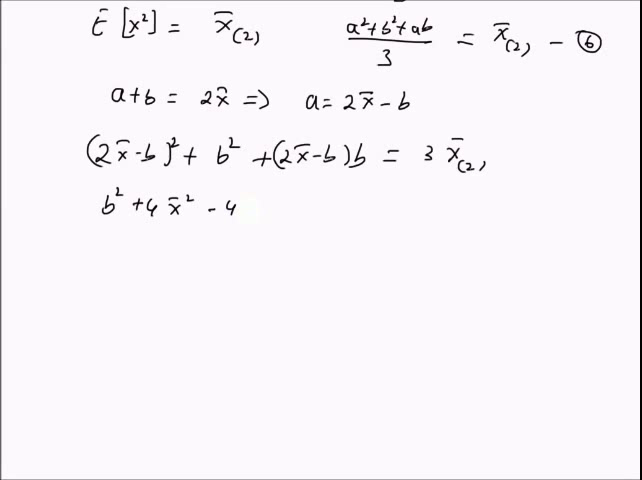 E[x²] = x̄₍₂₎   (a²+b²+ab)/3 = x̄₍₂₎ – ⑥
a+b = 2x̄ => a = 2x̄ – b
(2x̄-b)² + b² + (2x̄-b)b = 3 x̄₍₂₎
b² + 4x̄² - 4